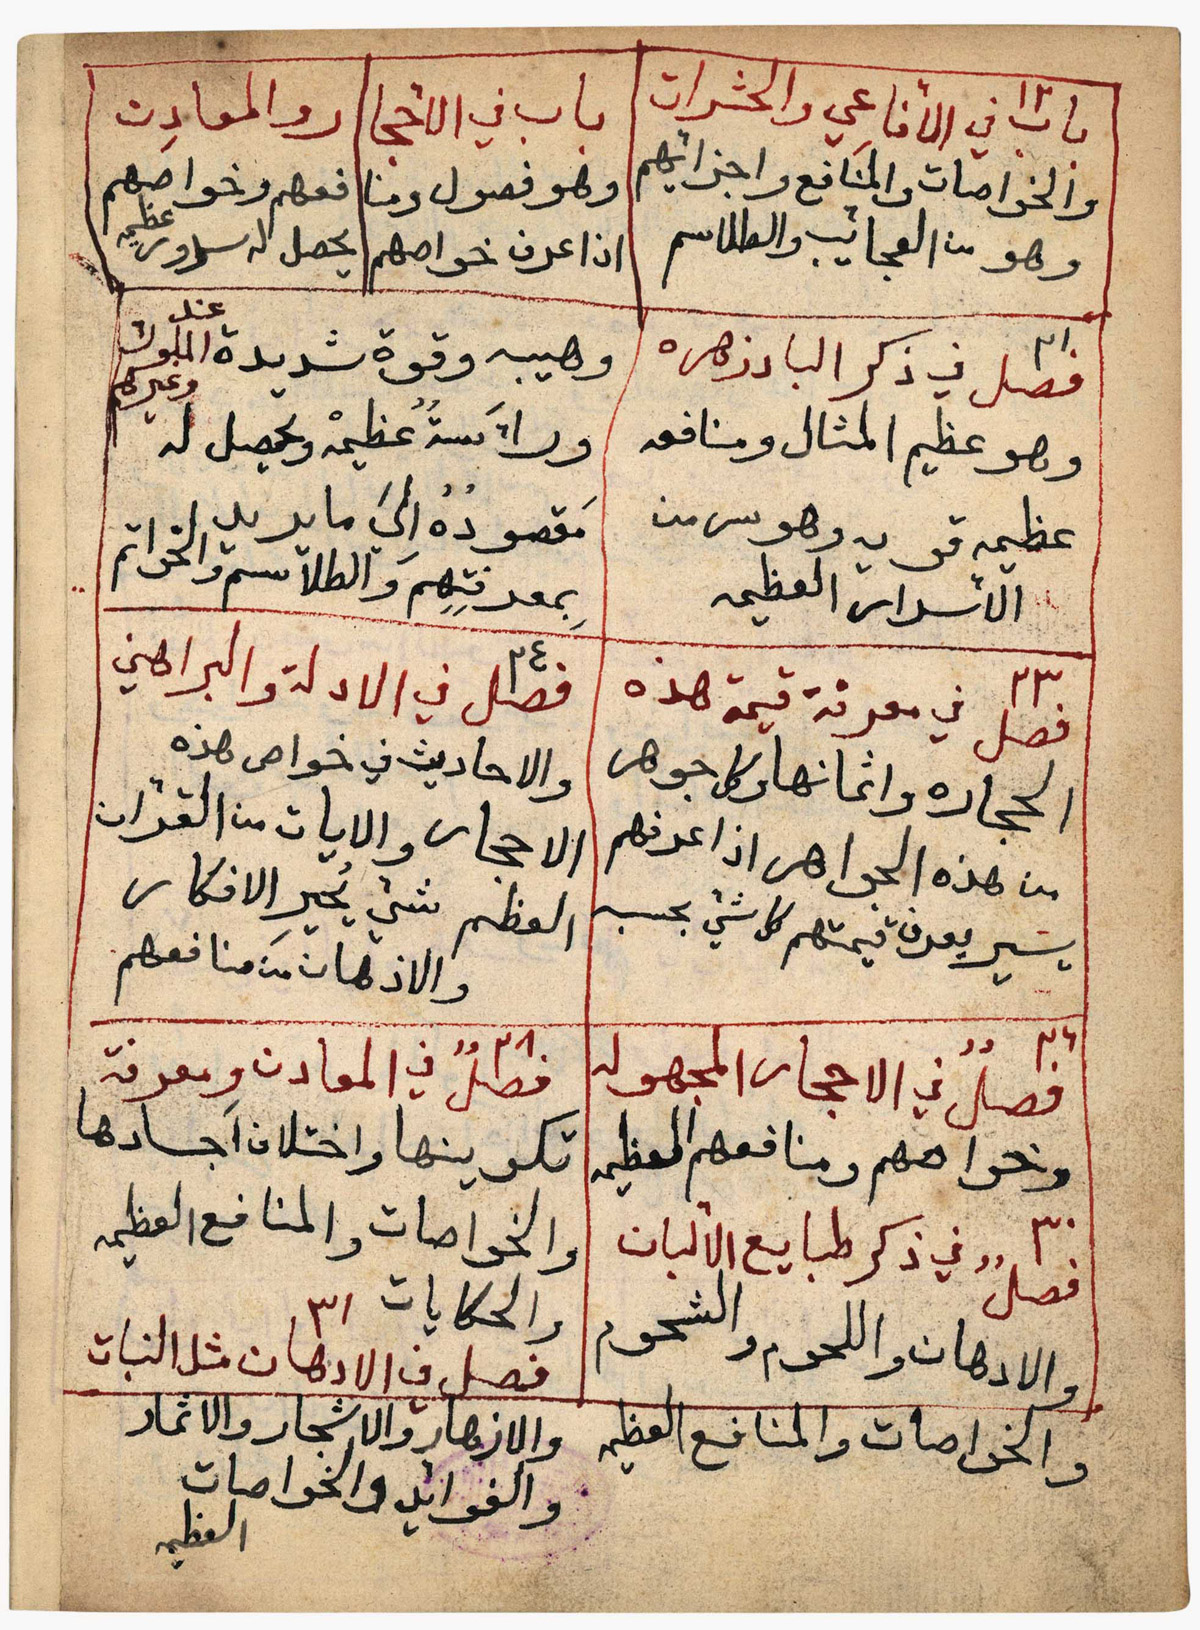 ١٣
باب في الأفاعي والحشرات
والخواصات والمنافع واجزائهم
وهو من العجائب والطلاسم
باب في الأحجار والمعادن
وهو فصول ومنافعهم وخواصهم
اذا عرف خواصهم يحصل له سرور عظيمه
٢١
فصل في ذكر البادزهره
وهو عظيم المثال ومنافعه
عظيمه قويه وهو سر من
الأسرار العظيمه
وهيبه وقوة شديدة عند الملوك وغيرهم
ورائسةُ عظيمْه ويحصل له
مَقصودُهُ اليَ ما يريد
بِمعرفتِهِم وَالطلاسم والخواتم
٢٣
فصل في معرفة قيمة هذه
الحجاره واثمانها وكل جوهر
من هذه الجواهر اذا عرفهم
يسير يعرف قيمتهم كل شئ بحسبه
٢٤
فصل في الادلة والبراهين
والاحاديث في خواص هذه
الاحجار والايات من القرآن
العظيم شئ يُحير الافكار
والاذهان من منافعهم
٢٦
فصلٌ في الاحجار المجهوله
وخواصهم ومنافعهم العظيمه
٢٨
فصلٌ في المعادن ومعرفة
تكوينها واختلاف اجسادها
والخواصات والمنافع العظيمه
والحكايات
٣٠
فصلٌ في ذكر طبايع الألبان
والادهان واللحوم والشحوم
والخواصات والمنافع العظيمه
٣١
فصل في الادهان مثل النبات
والازهار والاشجار والاثمار
والفوائد والخواصات
العظيمه